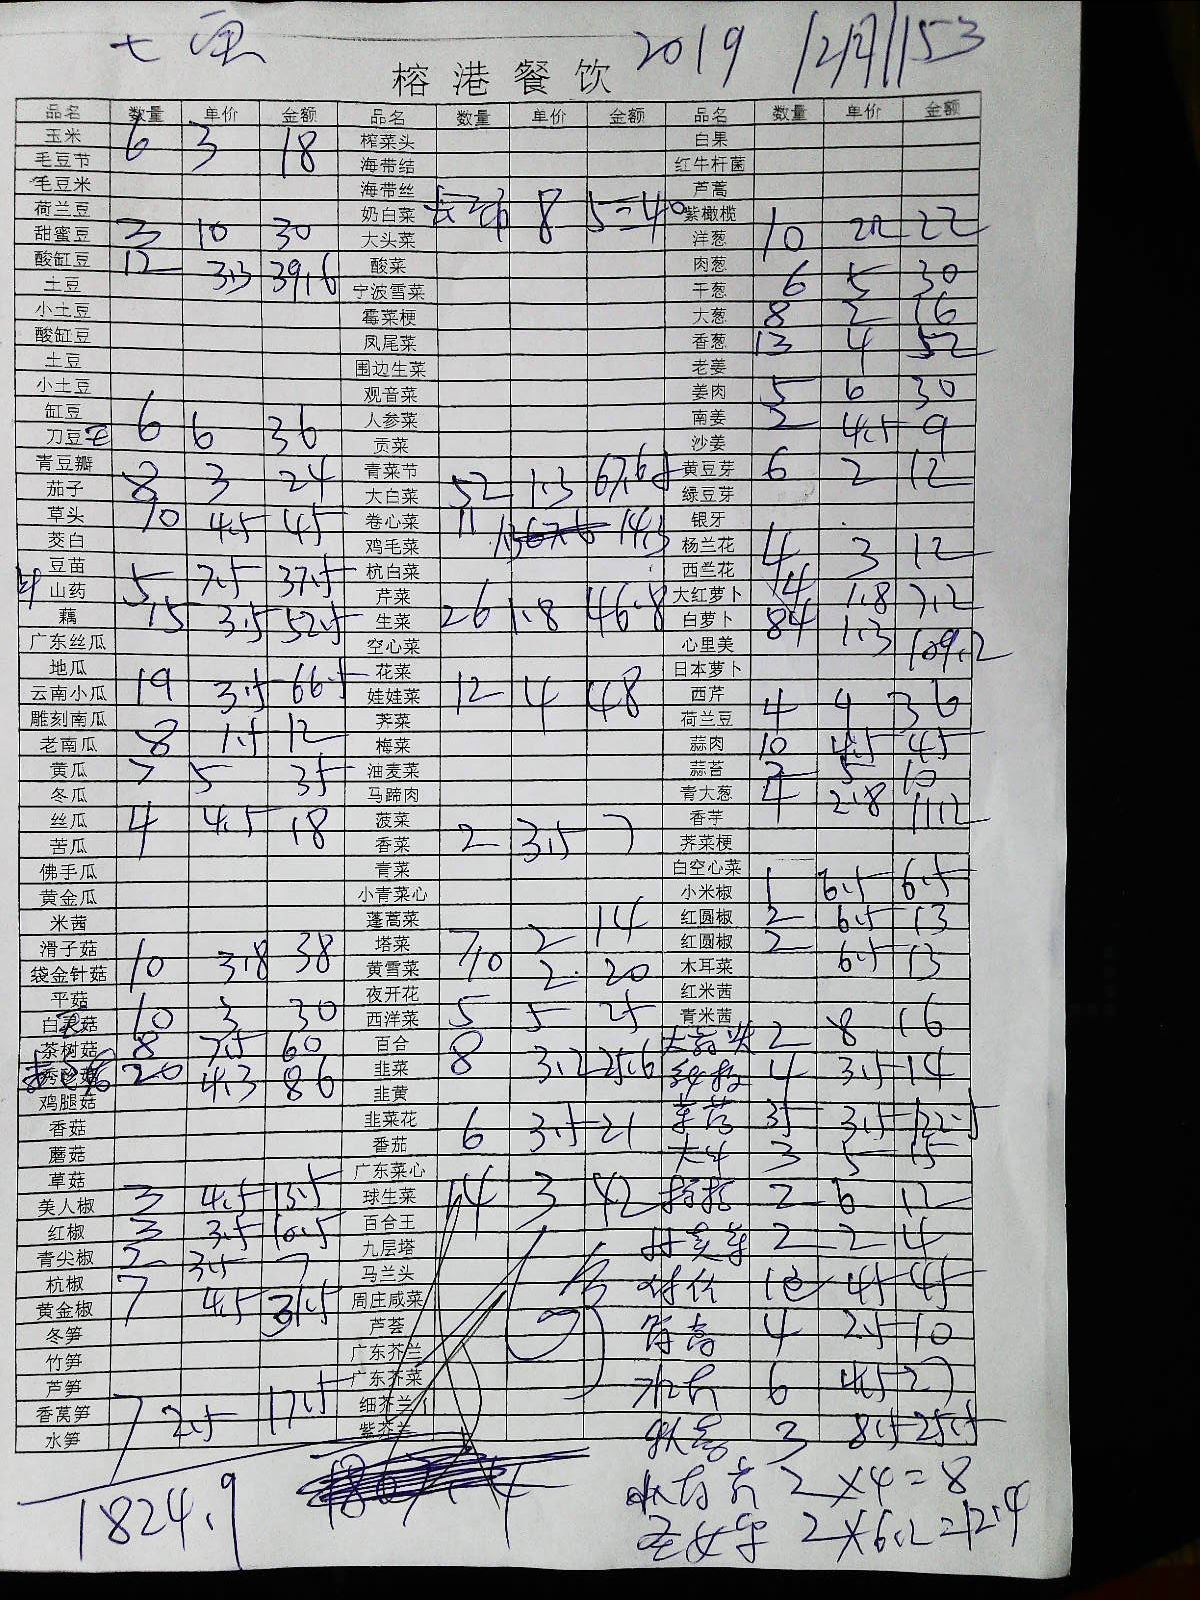 2019
榕港餐饮
品名 数量 单价 金额 品名 数量 单价 金额 品名 数量 单价 金额
玉米 6 3 18 榨菜头 白果
毛豆节 海带结 红牛杆菌
毛豆米 海带丝 芦蒿
荷兰豆 奶白菜 8 5=40 紫橄榄
甜蜜豆 3 10 30 大头菜 洋葱 10 2.2 22
酸缸豆 12 3.3 39.6 酸菜 肉葱
土豆 宁波雪菜 干葱 6 5 30
小土豆 霉菜梗 大葱 8 2 16
酸缸豆 凤尾菜 香葱 13 4 52
土豆 围边生菜 老姜
小土豆 观音菜 姜肉 5 6 30
缸豆 人参菜 南姜 2 4.5 9
刀豆 6 6 36 贡菜 沙姜
青豆瓣 青菜节 黄豆芽 6 2 12
茄子 8 3 24 大白菜 52 1.3 67.6 绿豆芽
草头 10 4.5 45 卷心菜 11 1.3 14.3 银牙
茭白 鸡毛菜 杨兰花 4 3 12
豆苗 杭白菜 西兰花
山药 5 7.5 37.5 芹菜 大红萝卜 4 1.8 7.2
藕 15 3.5 52.5 生菜 26 1.8 46.8 白萝卜 84 1.3 109.2
广东丝瓜 空心菜 心里美
地瓜 花菜 日本萝卜
云南小瓜 19 3.5 66.5 娃娃菜 12 4 48 西芹
雕刻南瓜 荠菜 荷兰豆 4 9 36
老南瓜 8 1.5 12 梅菜 蒜肉 10 4.5 45
黄瓜 7 5 35 油麦菜 蒜苔 2 5 10
冬瓜 马蹄肉 青大葱 4 2.8 11.2
丝瓜 4 4.5 18 菠菜 香芋
苦瓜 香菜 2 3.5 7 荠菜梗
佛手瓜 青菜 白空心菜
黄金瓜 小青菜心 小米椒 1 6.5 6.5
米茜 蓬蒿菜 红圆椒 2 6.5 13
滑子菇 塔菜 7 2 14 红圆椒 2 6.5 13
袋金针菇 10 3.8 38 黄雪菜 10 2 20 木耳菜
平菇 夜开花 红米茜
白灵菇 10 3 30 西洋菜 5 5 25 青米茜
茶树菇 8 7.5 60 百合 2 8 16
秀珍菇 20 4.3 86 韭菜 8 3.2 25.6 4 3.5 14
鸡腿菇 韭黄
香菇 韭菜花 35 3.5 122.5
蘑菇 番茄 6 3.5 21 3 5 15
草菇 广东菜心
美人椒 3 4.5 13.5 球生菜 14 3 42 2 6 12
红椒 3 3.5 10.5 百合王
青尖椒 2 3.5 7 九层塔 2 2 4
杭椒 马兰头
黄金椒 7 4.5 31.5 周庄咸菜 10 4.5 45
冬笋 芦荟 4 2.5 10
竹笋 广东芥兰
芦笋 广东芥菜 6 4.5 27
香莴笋 7 2.5 17.5 细芥兰
水笋 紫芥兰 3 8.5 25.5
2×4=8
1824.9 2×6.2=12.4